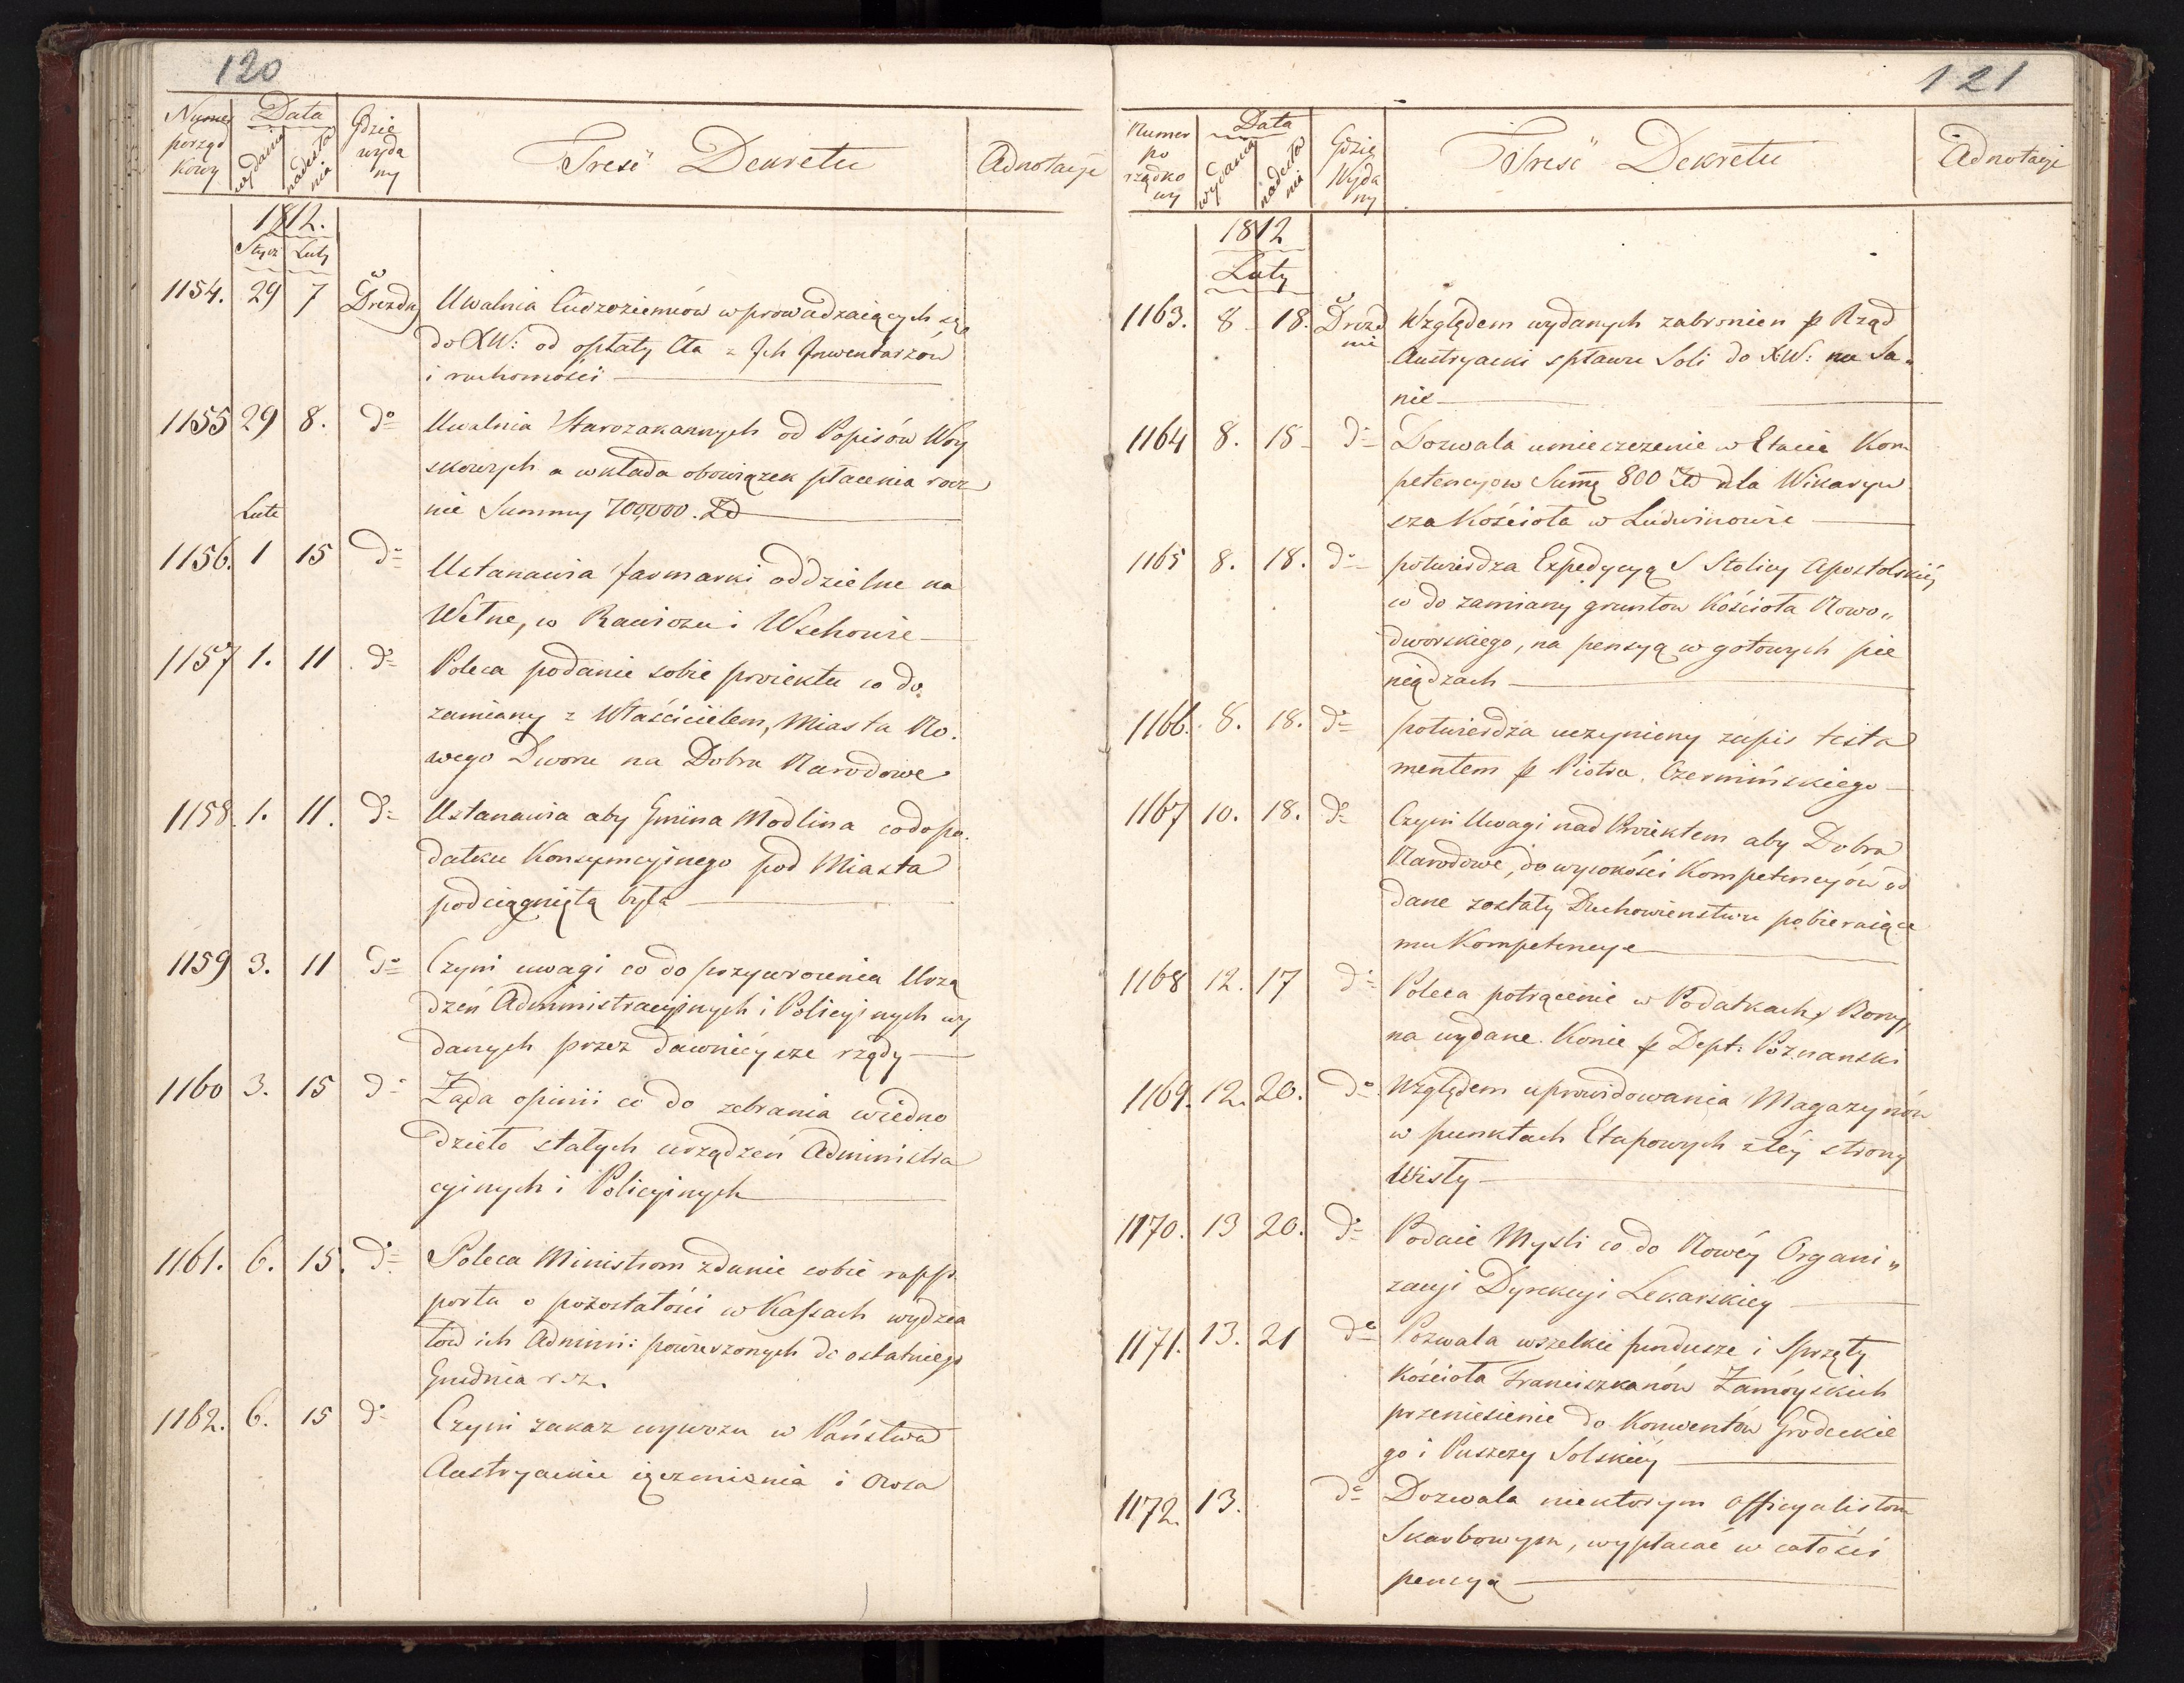 120
Numer porząd kowy
Data
wydania
nadesła nia
Gdzie wyda ny
Treść Dekretu
Adnotacje
1812.
Stycz Luty
1154. 29 7 w Drezdn Uwalnia Cudzoziemców wprowadzaiących się
do XW: od opłaty Cła z Ich Inwentarzów
i ruchomości
1155 29 8. do Uwalnia Starozakonnych od Popisów Woy
skowych a wkłada obowiązek płacenia rocz
nie Summy 700,000. Zł
Lute
1156. 1 15 do Ustanawia Jarmarki oddzielne na
Wełne, w Rawiczu i Wschowie
1157 1. 11. do Poleca podanie sobie proiektu co do
zamiany z Właścicielem, Miasta No.
wego Dworu na Dobra Narodowe
1158. 1. 11. do Ustanawia aby Gmina Modlina co do po.
datku Konsumcyjnego pod Miasta
podciągniętą była
1159 3. 11 do Czyni uwagi co do przywrócenia Urzą
dzeń Administracyjnych i Policyjnych wy
danych przez dawnieysze rządy
1160 3. 15 do Żąda opinii co do zebrania wiedno
dzieło stałych urządzeń Administra
cyjnych i Policyjnych
1161. 6. 15. do Poleca Ministrom zdanie sobie rapp
portu o pozostałości w Kassach wydzia
łów ich Admini: powierzonych do ostatniego
Grudnia r. z.
1162. 6. 15 do Czyni zakaz wywozu w Państwa
Austryackie ięczmienia i Owsa
121
Numer po rządko wy
Data
wydania
nadesła nia
Gdzie Wyda ny
Treść Dekretu
Adnotacje
1812
Luty
1163. 8 18. w Drezd nie Względem wydanych zabronien p Rząd
Austryacki spławu Soli do XW: na Sa„
nie
1164 8. 18 do Dozwala umieszczenie w Etacie Kom
petencyow Summę 800 Zł dla Wikaryu
sza Kościoła w Ludwinowie
1165 8. 18. do potwierdza Expedycyą S Stolicy Apostolskiéy
co do zamiany gruntów Kościoła Nowo„
dworskiego, na pensyą w gotowych pie
niądzach
1166. 8. 18. do potwierdza uczyniony zapis testa
mentem p Piotra Czermińskiego
1167 10. 18. do Czyni Uwagi nad Proiektem aby Dobra
Narodowe, do wysokości Kompetencyów od
dane zostały Duchowienstwu pobieraiące
mu Kompetencye
1168 12. 17 do Poleca potrącenie w Podatkach, Bony,
na wydane Konie p Dept: Poznanski
1169. 12. 20. do Względem uprowidowania Magazynów
w punktach Etapowych z téy strony
Wisły
1170. 13 20. do Podaie Myśli co do Nowéy Organi„
zacyi Dyrekcyi Lekarskiéy
1171. 13. 21 do Pozwala wszelkie fundusze i Sprzęty
Kościoła Franciszkanów Zamóyskich
przeniesienie do Konwentów Grodeckie
go i Puszczy Solskiéy
1172. 13. do Dozwala niektórym Officyalistom
Skarbowym, wypłacać w całości
pensyą